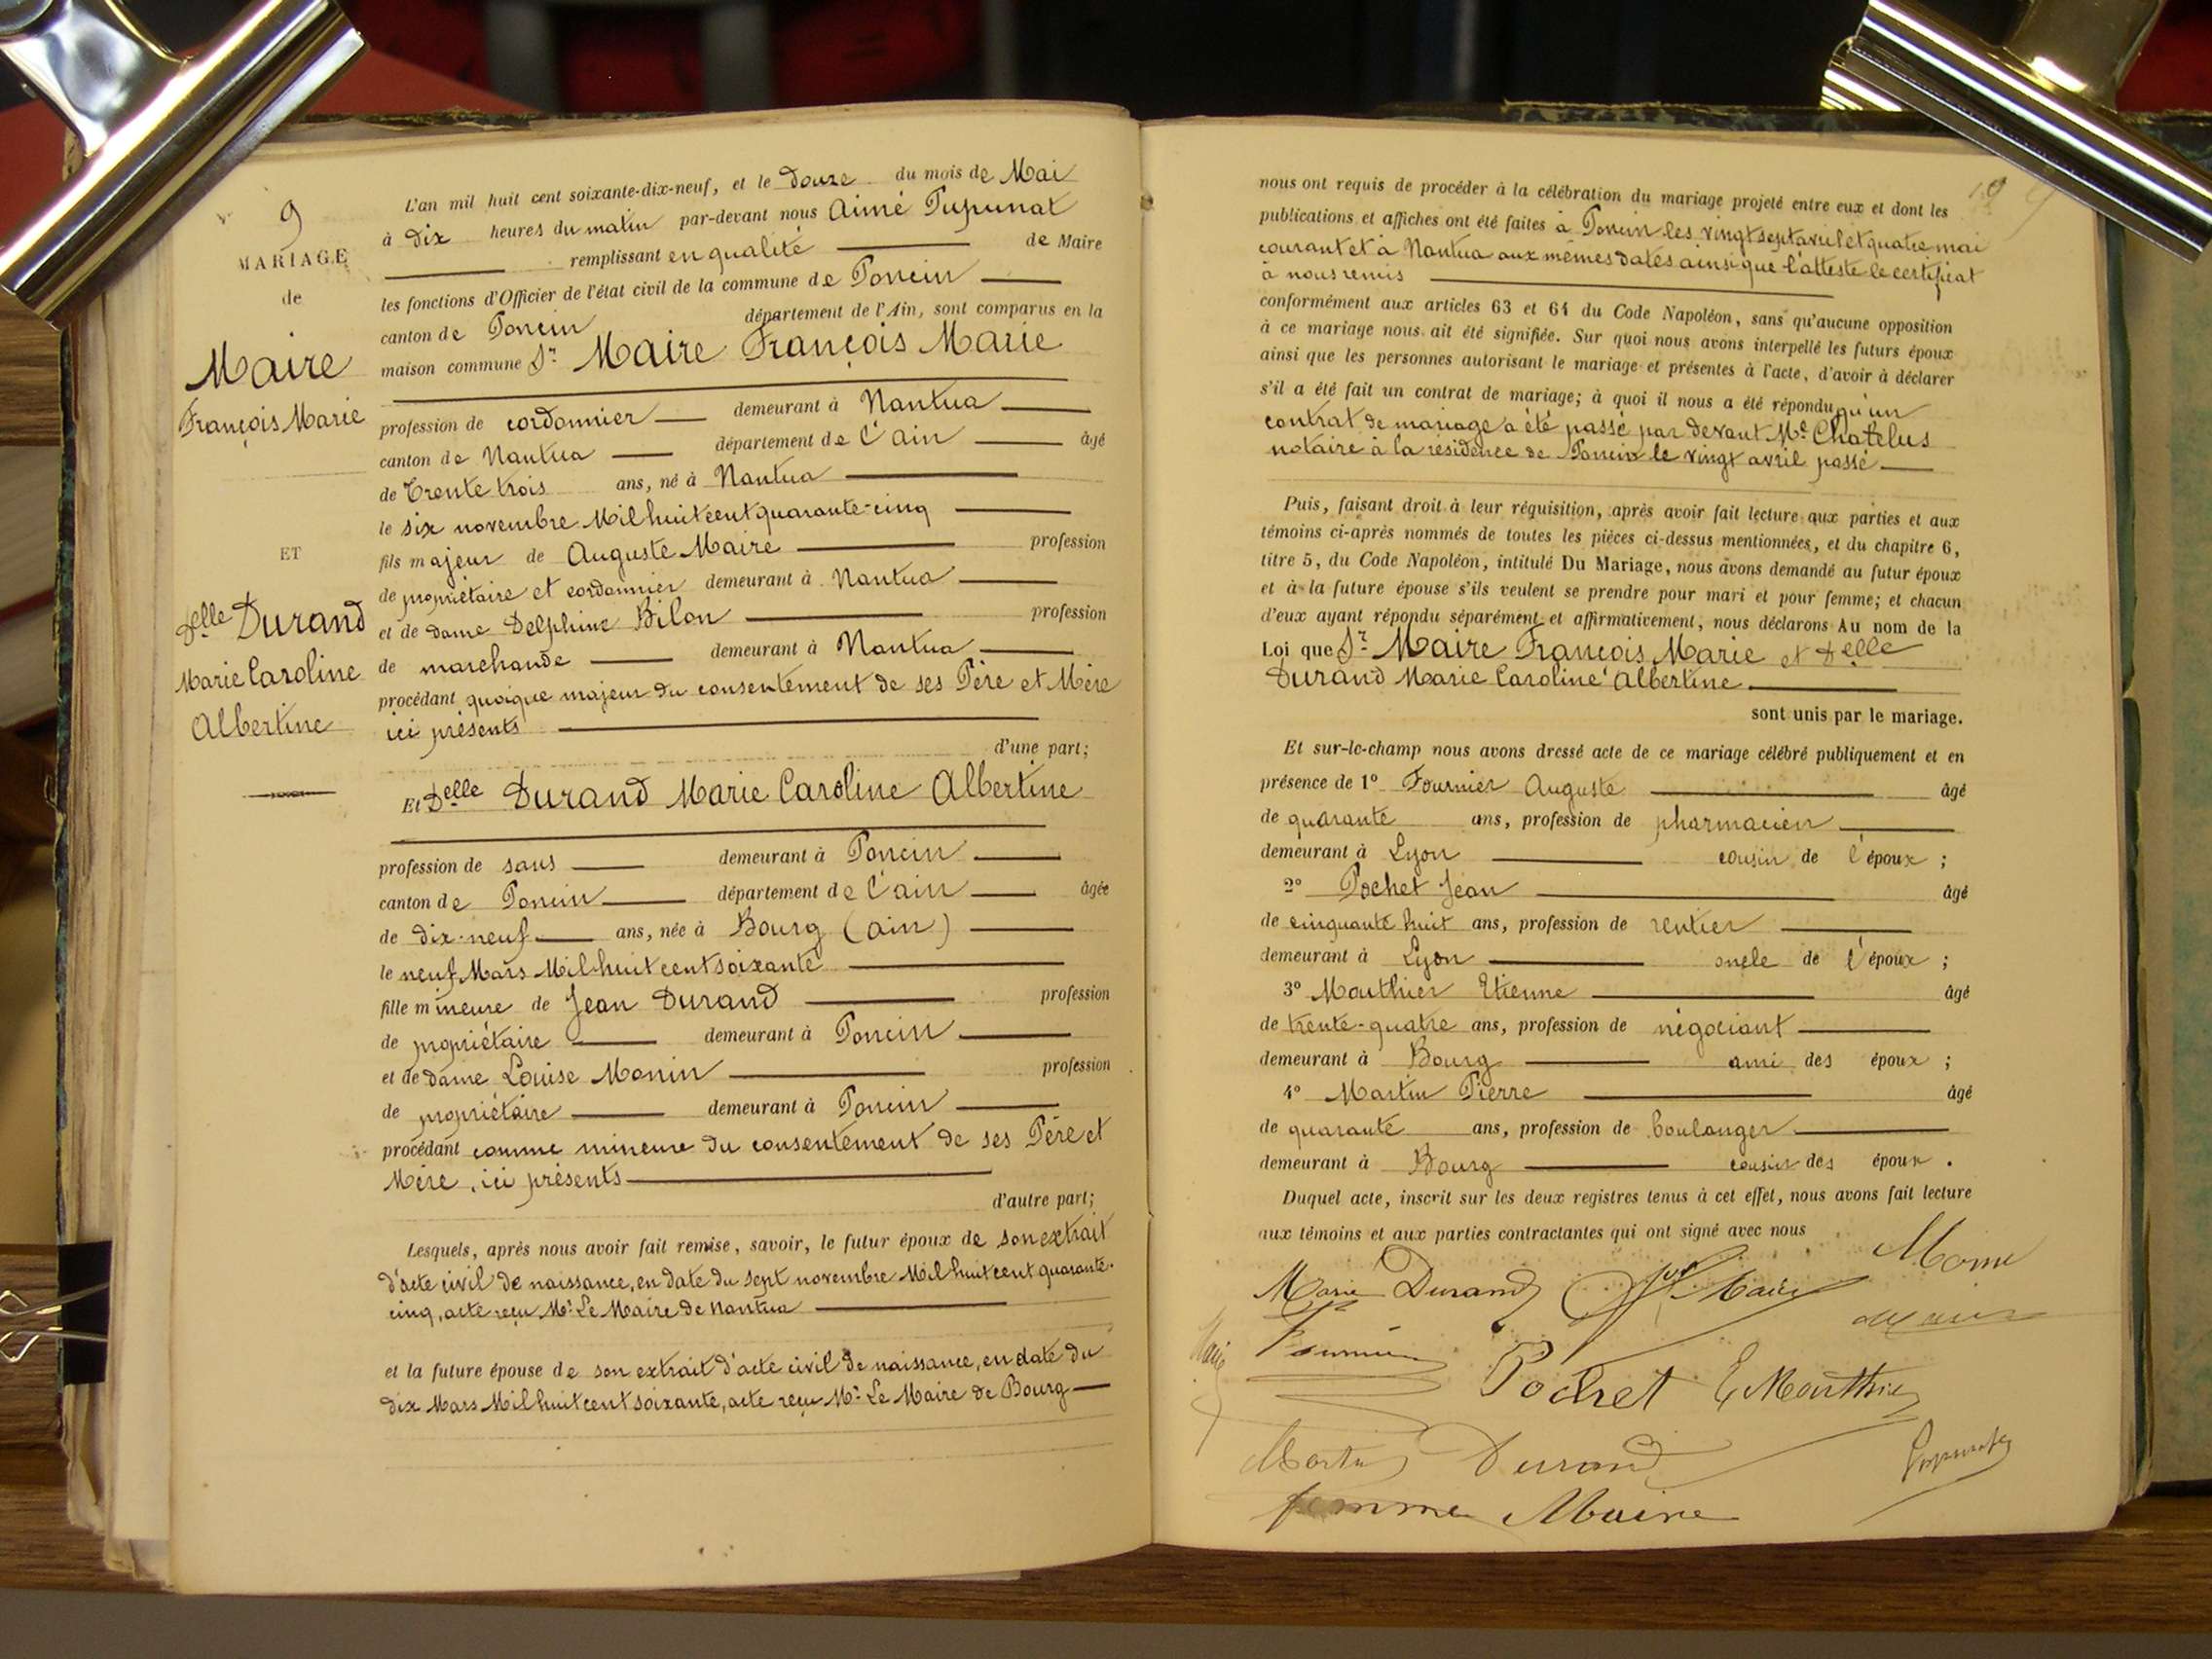 9
MARIAGE
de
Maire
François Marie
ET
Delle Durand
Marie Caroline
Albertine
L'an mil huit cent soixante-dix-neuf, et le douze du mois de Mai
à dix heures du matin par-devant nous Aimé Pupunat
remplissant en qualité de Maire
les fonctions d'Officier de l'état civil de la commune de Poncin
canton de Poncin département de l'Ain, sont comparus en la
maison commune Sr Maire François Marie
profession de cordonnier demeurant à Nantua
canton de Nantua département de l'ain âgé
de trente trois ans, né à Nantua
le six novembre Mil huit cent quarante-cinq
fils majeur de Auguste Maire profession
de propriétaire et cordonnier demeurant à Nantua
et de dame Delphine Bilon profession
de marchande demeurant à Nantua
procédant quoique majeur du consentement de ses Père et Mère
ici présents
d'une part;
Et Delle Durand Marie Caroline Albertine
profession de sans demeurant à Poncin
canton de Poncin département de l'ain âgée
de dix-neuf ans, née à Bourg (ain)
le neuf Mars Mil huit cent soixante
fille mineure de Jean Durand profession
de propriétaire demeurant à Poncin
et de dame Louise Monin profession
de propriétaire demeurant à Poncin
procédant comme mineure du consentement de ses Père et
Mère, ici présents
d'autre part;
Lesquels, après nous avoir fait remise, savoir, le futur époux de son extrait
d'acte civil de naissance, en date du sept novembre Mil huit cent quarante-
cinq, acte reçu Mr Le Maire de Nantua
et la future épouse de son extrait d'acte civil de naissance, en date du
dix Mars Mil huit cent soixante, acte reçu Mr Le Maire de Bourg
nous ont requis de procéder à la célébration du mariage projeté entre eux et dont les
publications et affiches ont été faites à Poncin les vingt sept avril et quatre mai
courant et à Nantua aux mêmes dates ainsi que l'atteste le certificat
à nous remis
conformément aux articles 63 et 64 du Code Napoléon, sans qu'aucune opposition
à ce mariage nous ait été signifiée. Sur quoi nous avons interpellé les futurs époux
ainsi que les personnes autorisant le mariage et présentes à l'acte, d'avoir à déclarer
s'il a été fait un contrat de mariage; à quoi il nous a été répondu qu'un
contrat de mariage a été passé par devant Me Chatelus
notaire à la résidence de Poncin le vingt avril passé
Puis, faisant droit à leur réquisition, après avoir fait lecture aux parties et aux
témoins ci-après nommés de toutes les pièces ci-dessus mentionnées, et du chapitre 6,
titre 5, du Code Napoléon, intitulé Du Mariage, nous avons demandé au futur époux
et à la future épouse s'ils veulent se prendre pour mari et pour femme; et chacun
d'eux ayant répondu séparément et affirmativement, nous déclarons Au nom de la
Loi que Sr Maire François Marie et Delle
Durand Marie Caroline Albertine
sont unis par le mariage.
Et sur-le-champ nous avons dressé acte de ce mariage célébré publiquement et en
présence de 1º Fournier Auguste âgé
de quarante ans, profession de pharmacien
demeurant à Lyon cousin de l'époux ;
2º Pochet Jean âgé
de cinquante huit ans, profession de rentier
demeurant à Lyon oncle de l'époux ;
3º Mouthier Etienne âgé
de trente-quatre ans, profession de négociant
demeurant à Bourg ami des époux ;
4º Martin Pierre âgé
de quarante ans, profession de boulanger
demeurant à Bourg cousin des époux .
Duquel acte, inscrit sur les deux registres tenus à cet effet, nous avons fait lecture
aux témoins et aux parties contractantes qui ont signé avec nous
Marie Durand Maire
Pochet E Mouthier
Durand
femme Maire